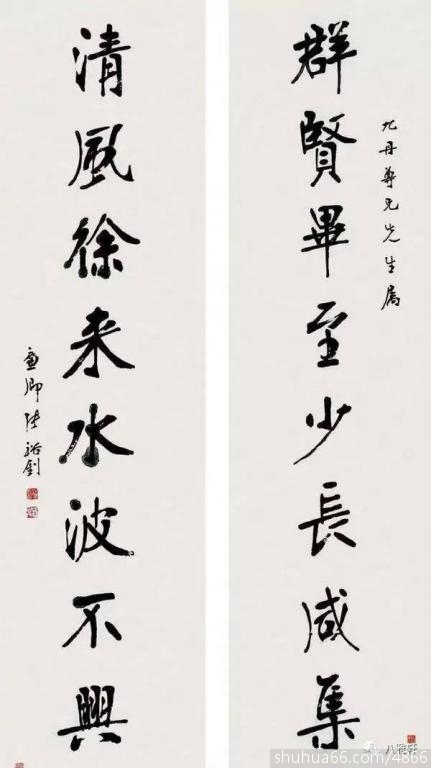 群賢畢至少長咸集
九丹尊兄先生屬
清風徐来水波不興
廉卿張裕釗
八雅轩
shuhua66.com/4866